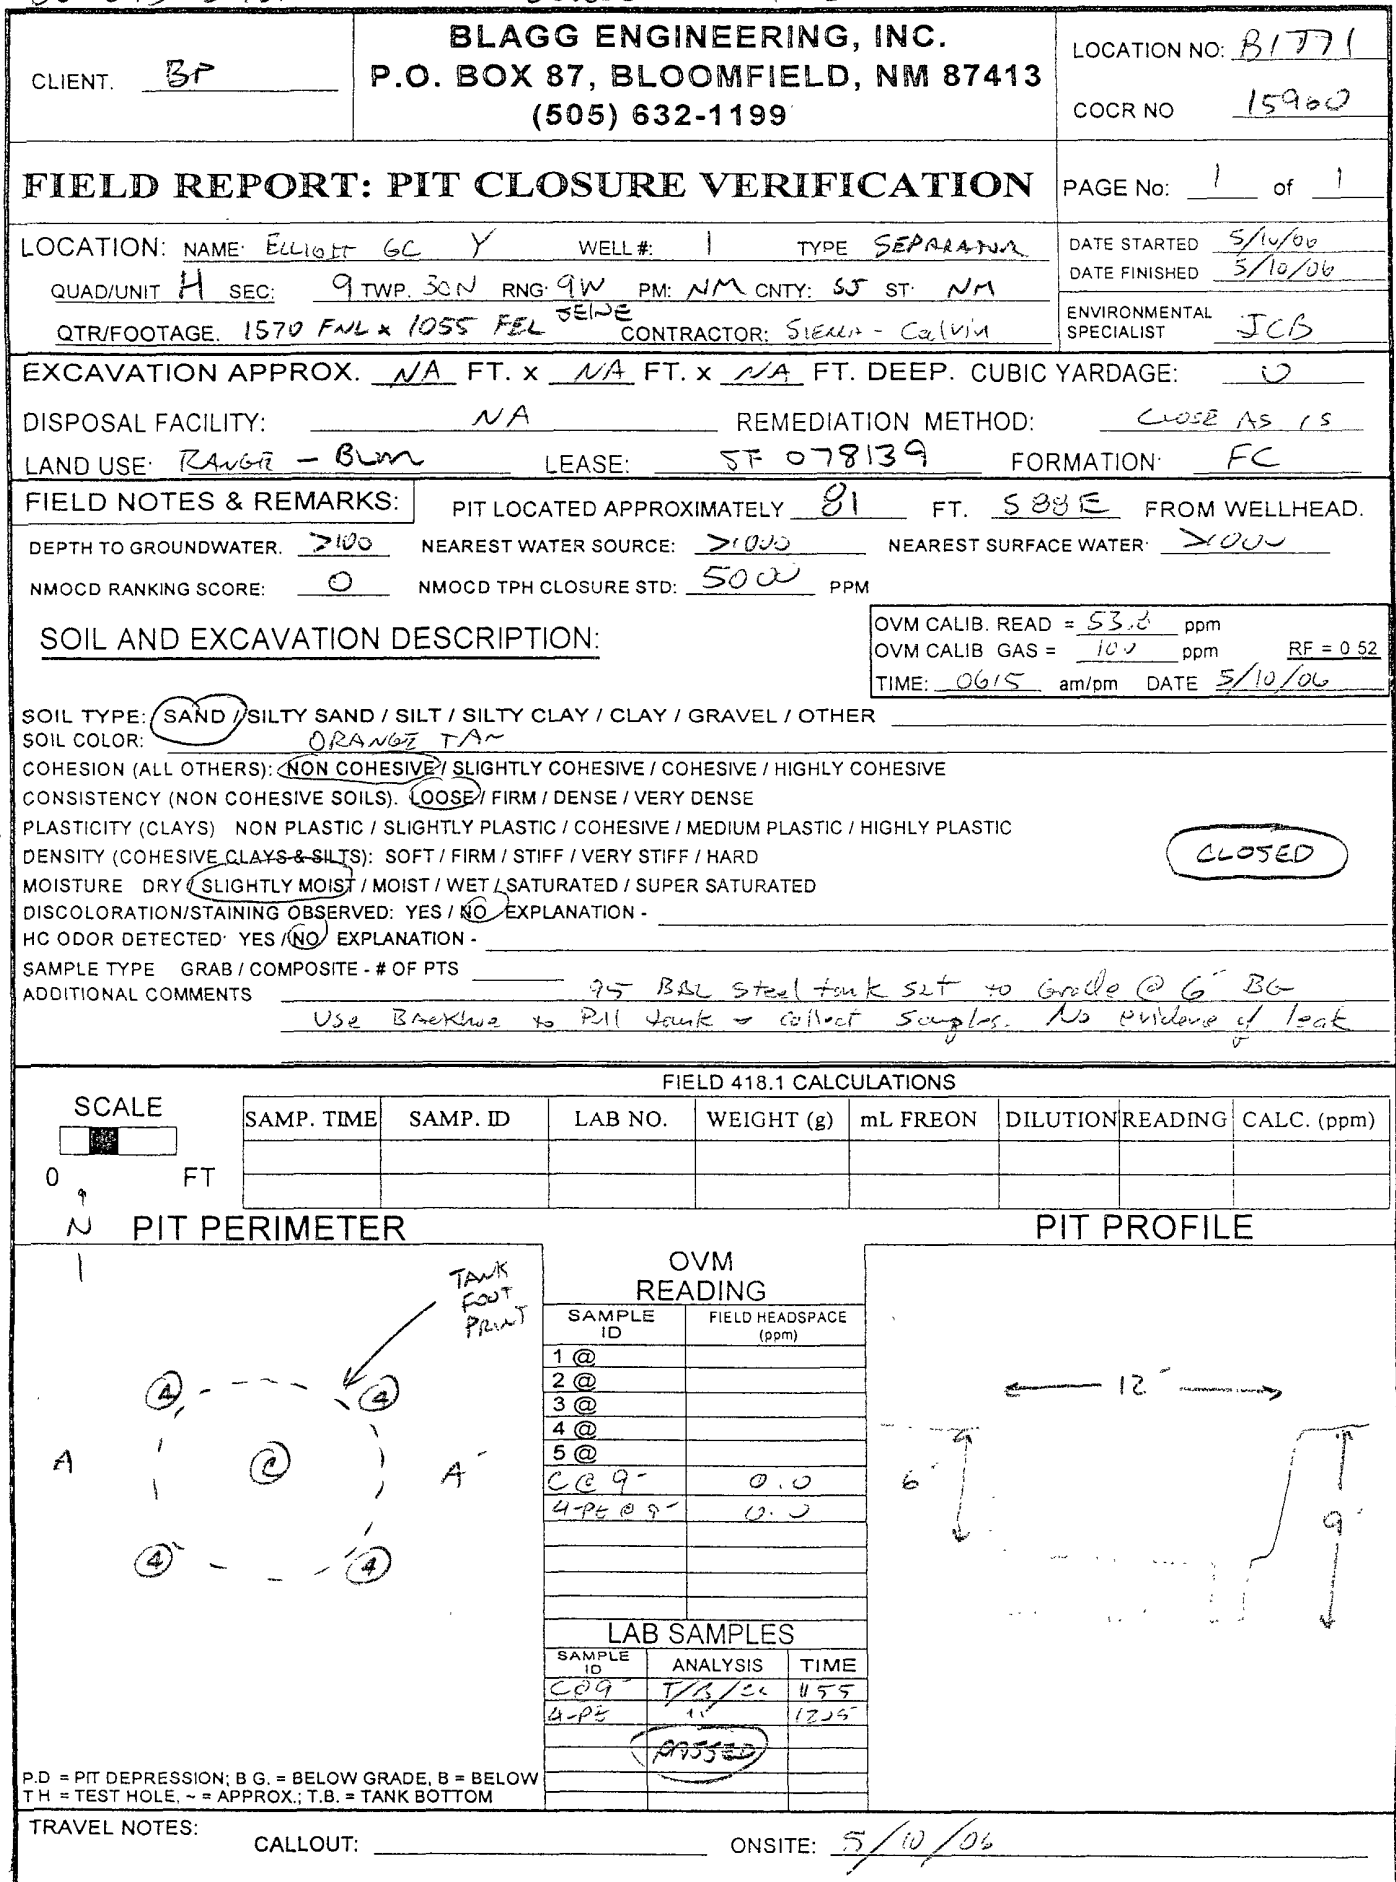 BLAGG ENGINEERING, INC.
P.O. BOX 87, BLOOMFIELD, NM 87413
(505) 632-1199
CLIENT. BP
LOCATION NO: B1771
COCR NO 15960
FIELD REPORT: PIT CLOSURE VERIFICATION
PAGE No: 1 of 1
LOCATION: NAME: ELLIOTT GC Y WELL #: 1 TYPE SEPARATOR
QUAD/UNIT H SEC: 9 TWP. 30N RNG: 9W PM: NM CNTY: SJ ST: NM
QTR/FOOTAGE. 1570 FNL x 1055 FEL SE/NE CONTRACTOR: SIERRA - Calvin
DATE STARTED 5/10/06
DATE FINISHED 5/10/06
ENVIRONMENTAL
SPECIALIST JCB
EXCAVATION APPROX. NA FT. x NA FT. x NA FT. DEEP. CUBIC YARDAGE: 0
DISPOSAL FACILITY: NA REMEDIATION METHOD: CLOSE AS IS
LAND USE: RANGE - BLM LEASE: SF 078139 FORMATION: FC
FIELD NOTES & REMARKS: PIT LOCATED APPROXIMATELY 81 FT. S88E FROM WELLHEAD.
DEPTH TO GROUNDWATER. >100 NEAREST WATER SOURCE: >1000 NEAREST SURFACE WATER: >1000
NMOCD RANKING SCORE: 0 NMOCD TPH CLOSURE STD: 5000 PPM
SOIL AND EXCAVATION DESCRIPTION:
OVM CALIB. READ = 53.2 ppm
OVM CALIB GAS = 100 ppm RF = 0 52
TIME: 0615 am/pm DATE 5/10/06
SOIL TYPE: SAND / SILTY SAND / SILT / SILTY CLAY / CLAY / GRAVEL / OTHER
SOIL COLOR: ORANGE TAN
COHESION (ALL OTHERS): NON COHESIVE / SLIGHTLY COHESIVE / COHESIVE / HIGHLY COHESIVE
CONSISTENCY (NON COHESIVE SOILS). LOOSE / FIRM / DENSE / VERY DENSE
PLASTICITY (CLAYS) NON PLASTIC / SLIGHTLY PLASTIC / COHESIVE / MEDIUM PLASTIC / HIGHLY PLASTIC
DENSITY (COHESIVE CLAYS & SILTS): SOFT / FIRM / STIFF / VERY STIFF / HARD
CLOSED
MOISTURE DRY / SLIGHTLY MOIST / MOIST / WET / SATURATED / SUPER SATURATED
DISCOLORATION/STAINING OBSERVED: YES / NO EXPLANATION -
HC ODOR DETECTED: YES / NO EXPLANATION -
SAMPLE TYPE GRAB / COMPOSITE - # OF PTS
ADDITIONAL COMMENTS 95 BBL Steel tank set to Grade @ 6' BG
Use Backhoe to Pull tank & collect samples. No evidence of leak
FIELD 418.1 CALCULATIONS
SCALE
0 FT
SAMP. TIME SAMP. ID LAB NO. WEIGHT (g) mL FREON DILUTION READING CALC. (ppm)
N
PIT PERIMETER
PIT PROFILE
TANK
FOOT
PRINT
4 4
A C A'
4 4
OVM
READING
SAMPLE ID FIELD HEADSPACE (ppm)
1 @
2 @
3 @
4 @
5 @
C @ 9' 0.0
4-Pt @ 9' 0.0
LAB SAMPLES
SAMPLE ID ANALYSIS TIME
C@9' 1155
4-Pt "
PASSED
12'
6'
9'
P.D = PIT DEPRESSION; B G. = BELOW GRADE, B = BELOW
T H = TEST HOLE, ~ = APPROX.; T.B. = TANK BOTTOM
TRAVEL NOTES:
CALLOUT: ONSITE: 5/10/06